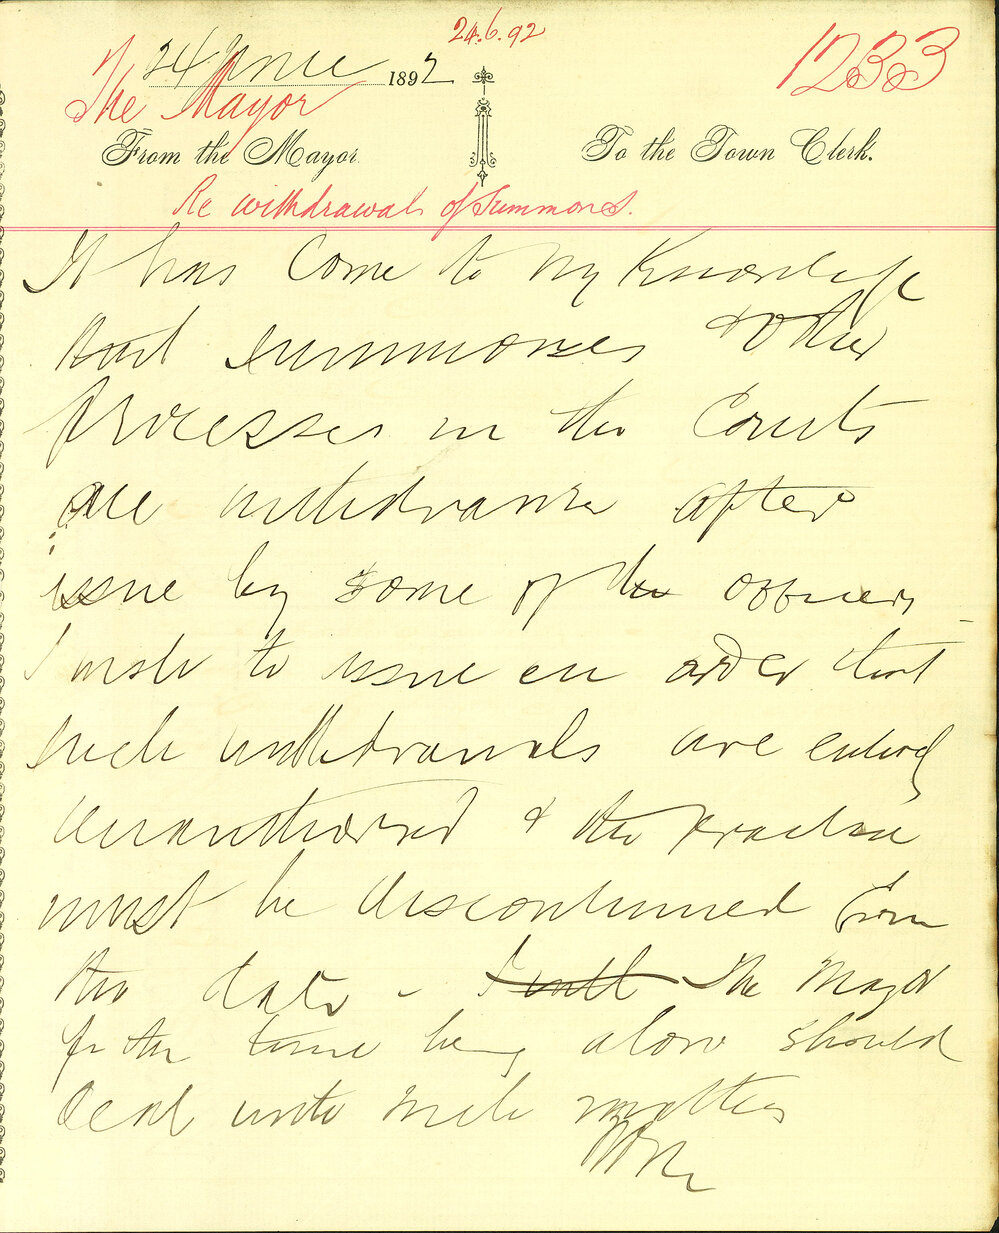 24.6.92
24 June 1892
1233
The Mayor
From the Mayor
To the Town Clerk.
Re withdrawals of Summonses.
It has Come to my Knowledge
that summonses & other
processes in the Courts
are withdrawn after
issue by some of the officers
I wish to issue an order that
such withdrawals are entirely
unauthorised & the practice
must be discontinued from
this date - I will The Mayor
for the time being alone should
deal with such matters